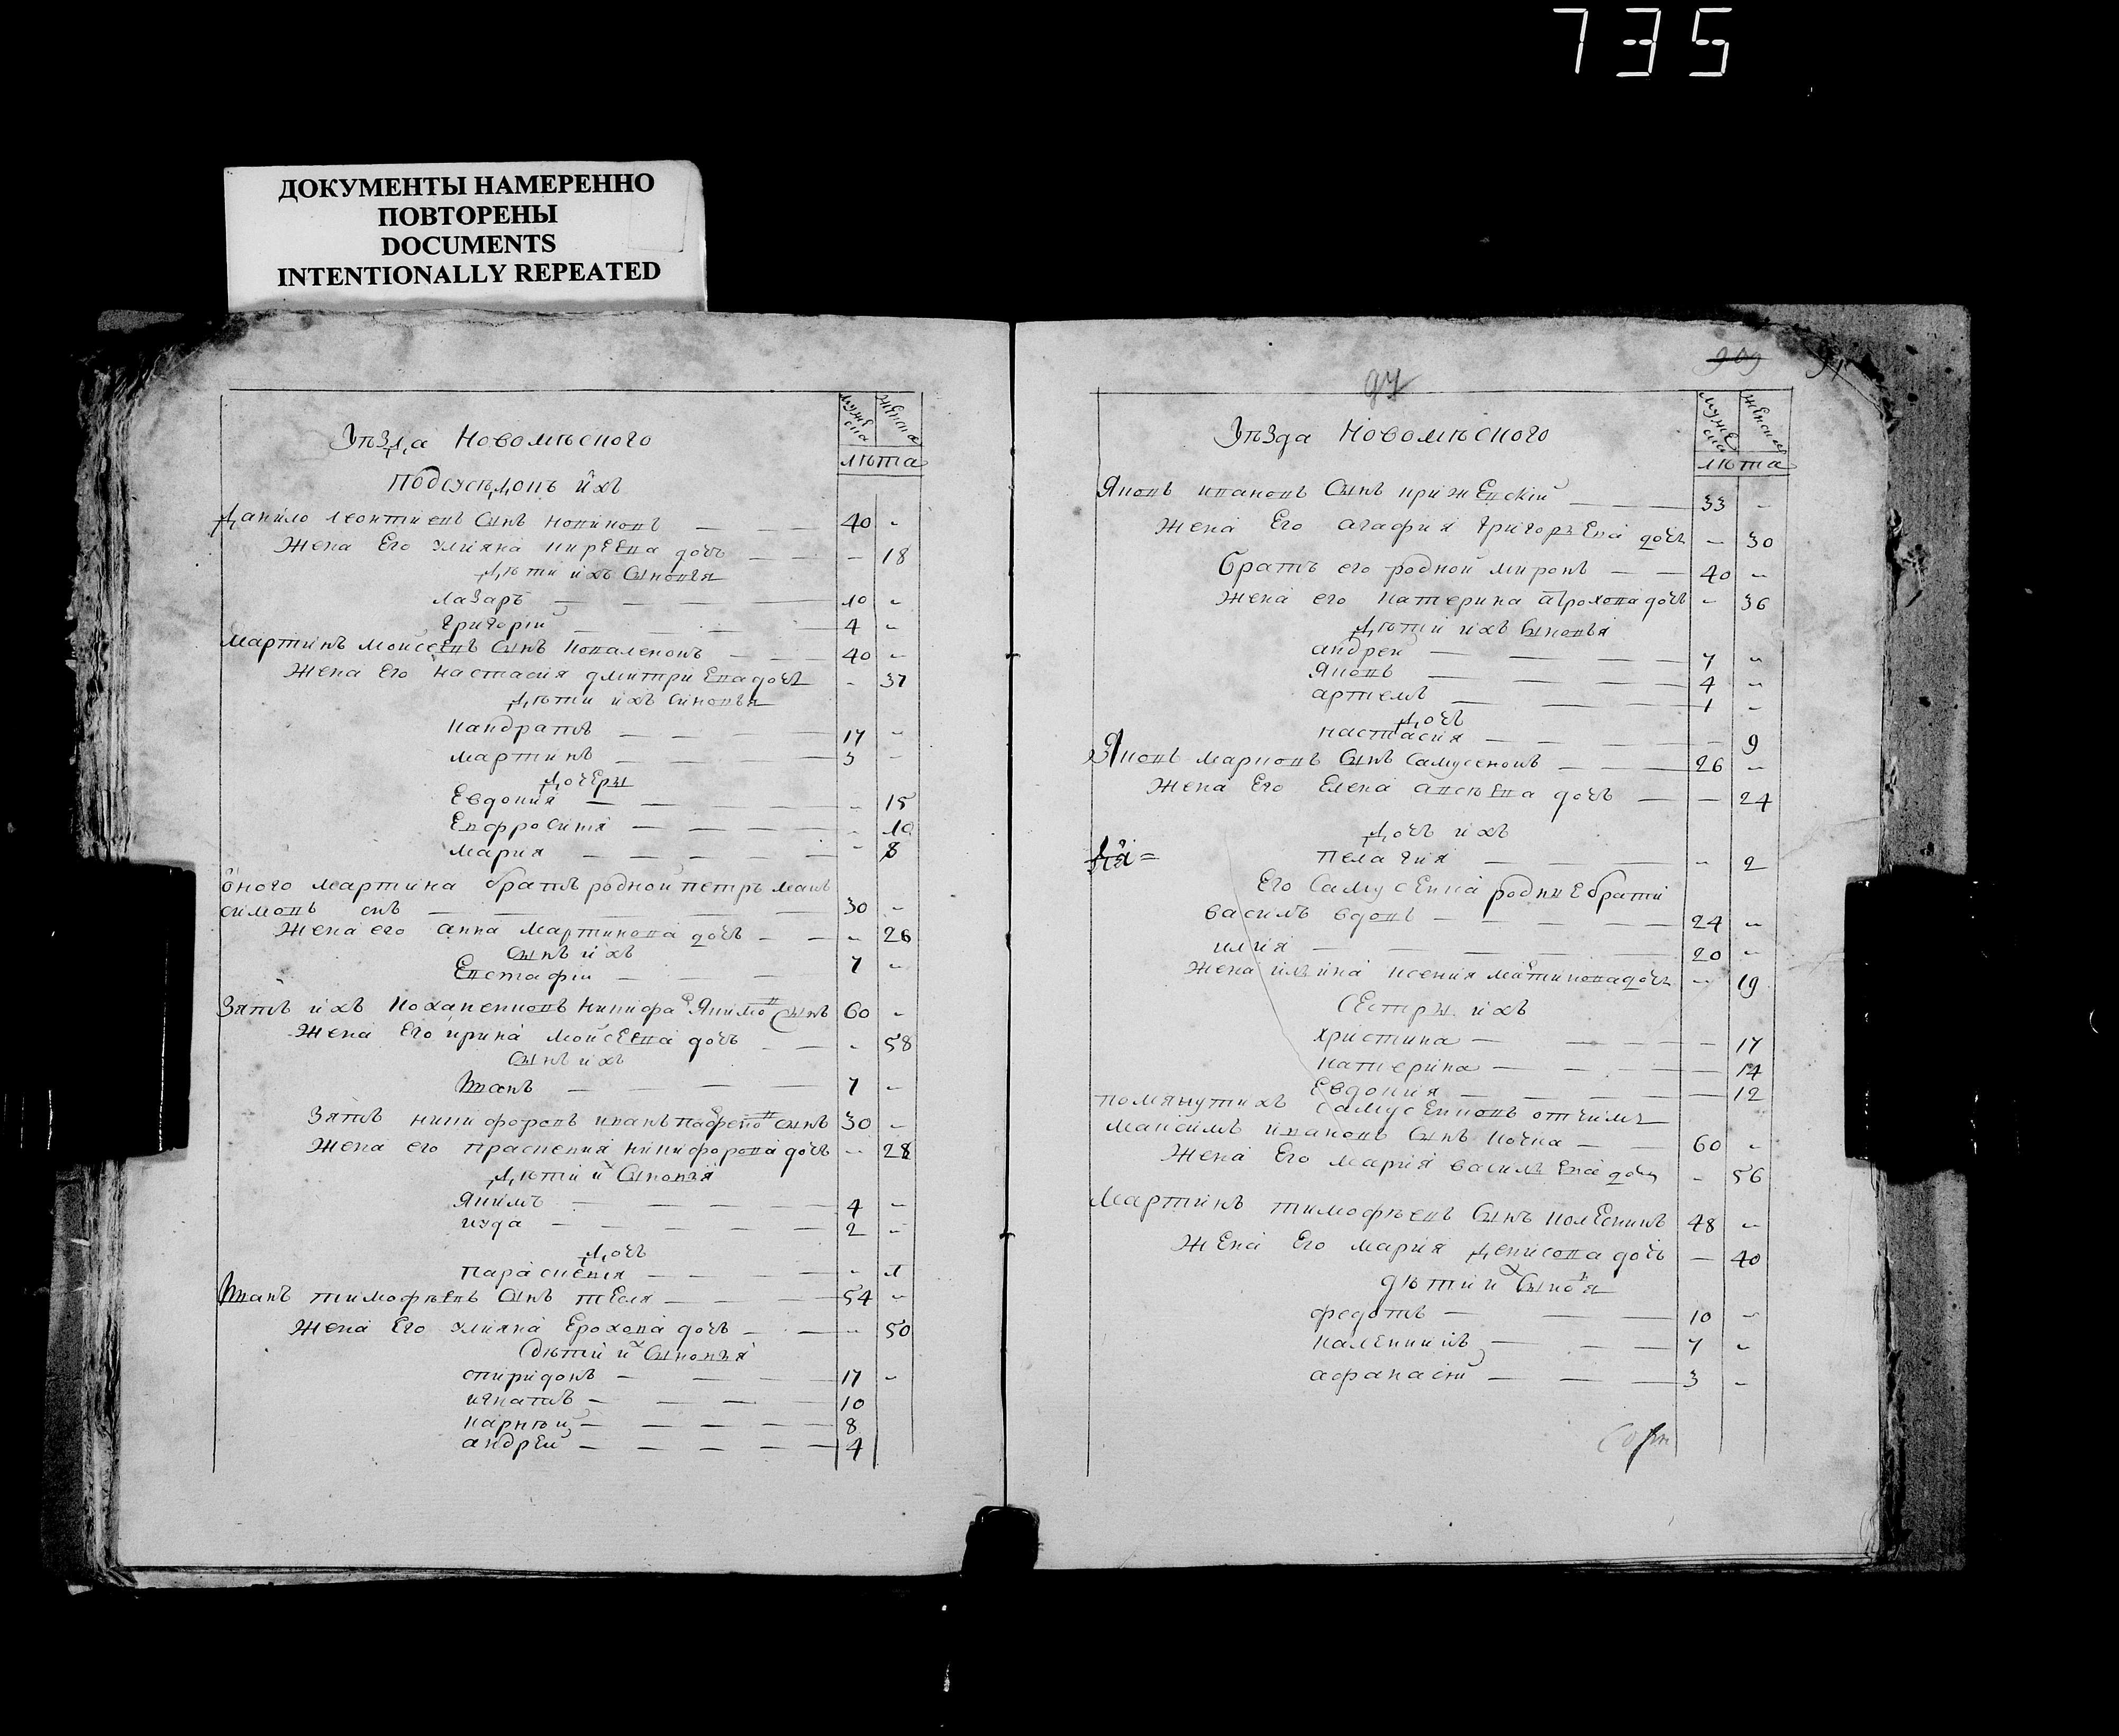 735
ДОКУМЕНТЫ НАМЕРЕННО
ПОВТОРЕНЫ
DOCUMENTS
INTENTIONALLY REPEATED
Уезда Новомѣского
мужеска женска
лѣта
Подсуседковъ ихъ
Данило леонтиевъ сынъ новиковъ — 40 -
Жена Его улияна киреева дочь — - 18
Дѣти ихъ сыновья
лазаръ — 10 -
григорій — 4 -
мартинъ мойсеевъ сынъ коваленокъ — 40 -
Жена Его настасия дмитриева дочь - 37
Дѣти ихъ синовья
кандратъ — 17 -
мартинъ — 3 -
Дочеры
Евдокия — - 15
Евфросиния — - 10
мария — - 8
оного мартина братъ родной петръ мак
симовъ снъ — 30 -
Жена его анна мартинова дочь — - 26
сынъ ихъ
Евстафій — 7 -
Зять ихъ никифоръ Якимовъ сынъ 60 -
Жена Его ирина мойсеева дочь — - 58
сынъ ихъ
Иванъ — 7 -
Зять никифоровъ иванъ парфеновъ сынъ 30 -
Жена его праскевия никифорова дочь - 28
Дѣти их сыновья
Якимъ — 4 -
иуда — 2 -
Дочь
параскевия — - 1
Иванъ тимофѣевъ сынъ тесля — 54 -
Жена Его улияна Ерохова дочь — - 50
дѣти их сыновья
спиридонъ — 17 -
игнатъ — 10
карнѣй — 8
андрей — 4
97
Уезда Новомѣского
мужеска женска
лѣта
Яковъ ивановъ сынъ — 33 -
Жена Его агафия григорьева дочь - 30
Братъ его родной миронъ — 40 -
Жена его катерина дочь - 36
Дѣти ихъ сыновья
андрей — 7 -
Яковъ — 4 -
артемъ — 1 -
Дочь
настасия — 9
Яковъ марковъ сынъ самусенокъ — 26 -
Жена Его Елена дочь — - 24
Дочь ихъ
пелагия — - 2
Его самусенка родние брати
василь вдовъ — 24 -
илия — 20 -
жена илина ксения дочь - 19
сестры ихъ
христина — - 17
катерина — - 14
Евдокия — 12
помянутихъ самусенковъ отчимъ
максимъ ивановъ сынъ кочка — 60 -
Жена Его мария василева дочь - 56
Мартинъ тимофѣевъ сынъ колесникъ 48 -
Жена Его мария денисова дочь - 40
дѣти их сыновя
федотъ — 10 -
каленникъ — 7 -
афанасий — 3 -